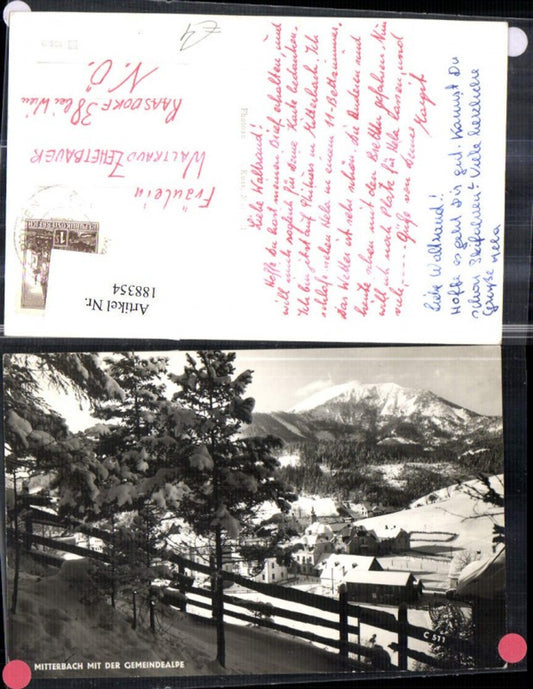 Liebe Waltraud!
Hoffe Du hast meinen Brief erhalten, und
will mich sogleich für deine Karte bedanken.
Ich bin jetzt auf Skikurs in Mitterbach. Ich
schlafe neben Hela in einem 11-Bettzimmer.
Das Wetter ist sehr schön. Die Anderen sind
heute schon mit den Brettln gefahren. Nun
will ich noch Platz für Hela lassen, und
viele, ... Grüße von deiner
Margit
Liebe Waltraud!
Hoffe es geht Dir gut. Kannst Du
schon Skifahren? Viele herzliche
Grüße Hela
Fräulein
WALTRAUD ZEHETBAUER
RAASDORF 38 bei Wien
N.Ö.
REPUBLIK ÖSTERREICH
1
Artikel Nr.
188354
MITTERBACH MIT DER GEMEINDEALPE
C 511